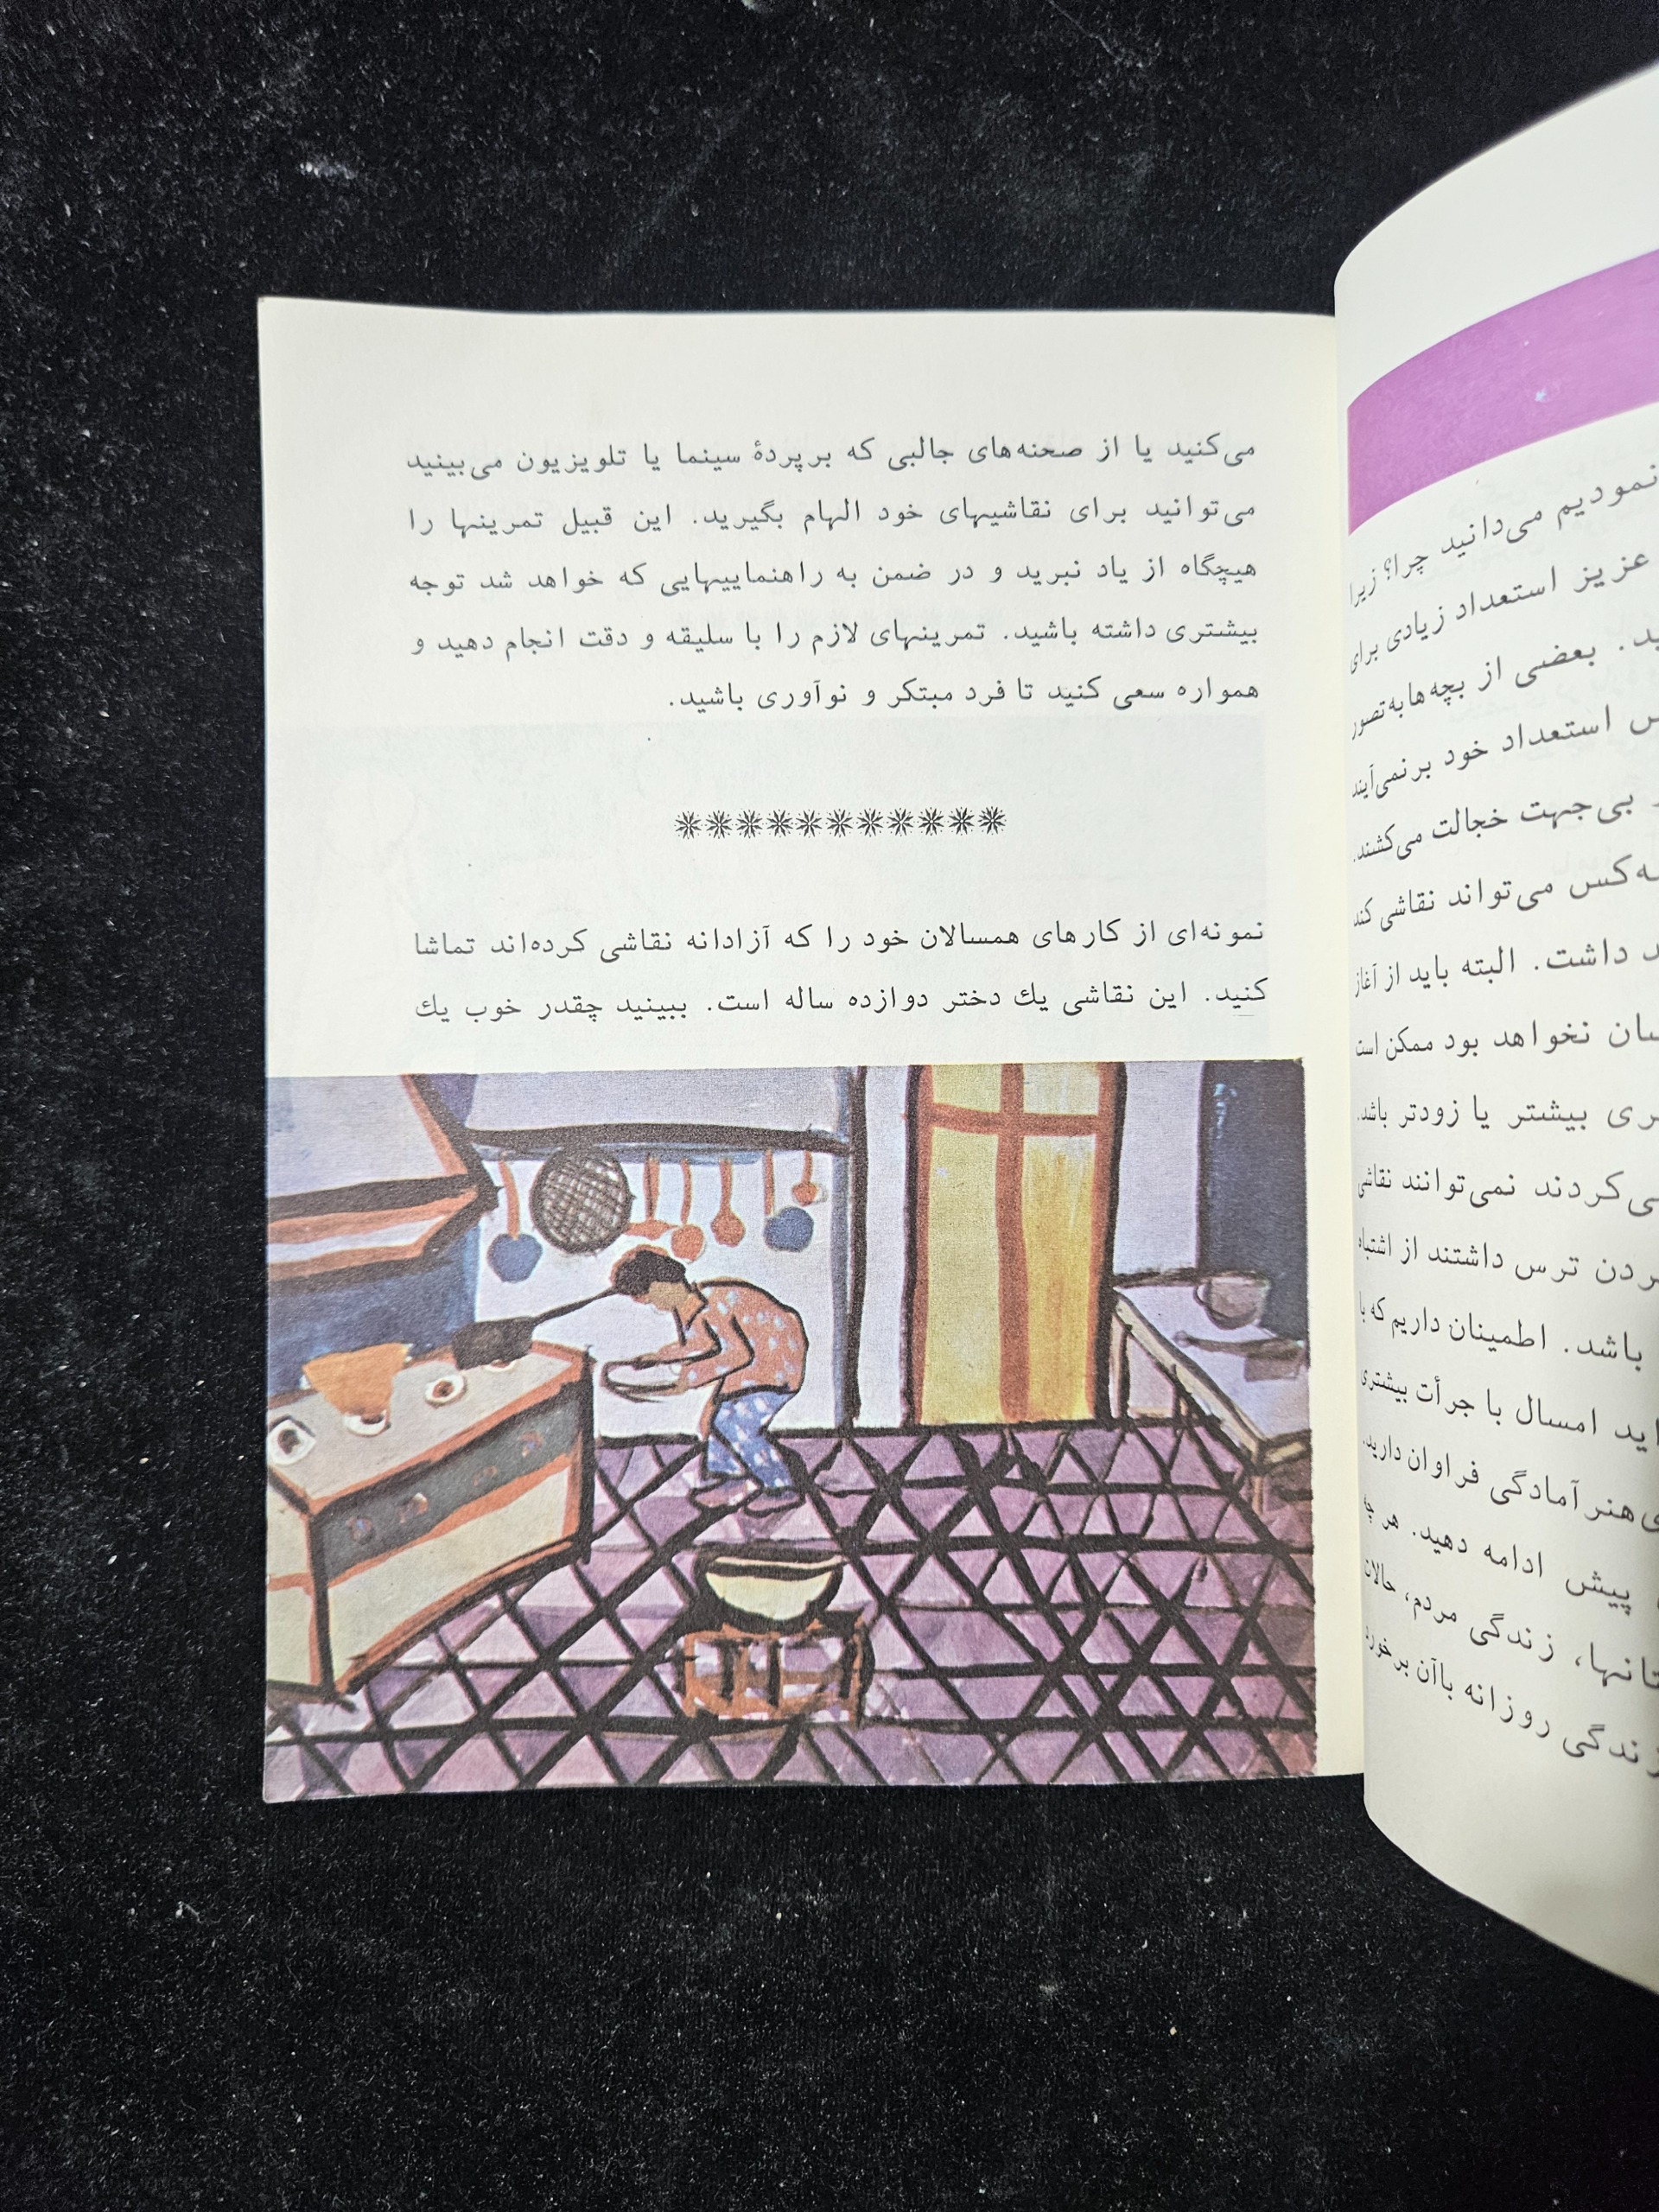 می‌کنید یا از صحنه‌های جالبی که بر پردهٔ سینما یا تلویزیون می‌بینید
می‌توانید برای نقاشیهای خود الهام بگیرید. این قبیل تمرینها را
هیچگاه از یاد نبرید و در ضمن به راهنماییهایی که خواهد شد توجه
بیشتری داشته باشید. تمرینهای لازم را با سلیقه و دقت انجام دهید و
همواره سعی کنید تا فرد مبتکر و نوآوری باشید.
***********
نمونه‌ای از کارهای همسالان خود را که آزادانه نقاشی کرده‌اند تماشا
کنید. این نقاشی یك دختر دوازده ساله است. ببینید چقدر خوب یك
نمودیم می‌دانید چرا؟ زیرا
عزیز استعداد زیادی برای
بعضی از بچه‌ها به‌تصور
استعداد خود برنمی‌آیند
بی‌جهت خجالت می‌کشند.
می‌تواند نقاشی کند
داشت. البته باید از آغاز
نخواهد بود ممکن است
بیشتر یا زودتر باشد.
نمی‌توانند نقاشی
ترس داشتند از اشتباه
باشد. اطمینان داریم که با
امسال با جرأت بیشتری
هنر آمادگی فراوان دارید.
پیش ادامه دهید. هر چه
زندگی مردم، حالات
روزانه باآن برخورد